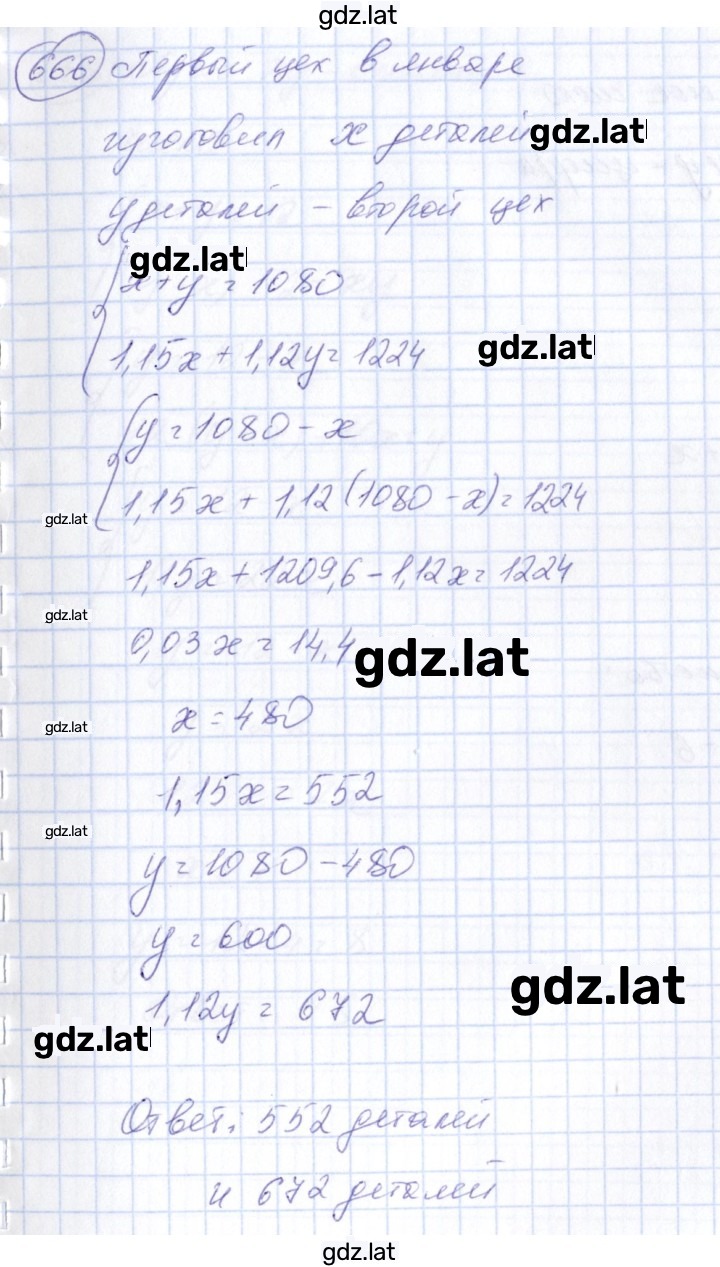 gdz.lat
666 Первый цех в январе
изготовил x деталей gdz.lat
y деталей – второй цех
gdz.lat
x+y=1080
1,15x + 1,12y = 1224 gdz.lat
y=1080-x
gdz.lat 1,15x + 1,12(1080-x)=1224
1,15x+1209,6-1,12x=1224
gdz.lat
0,03x = 14,4 gdz.lat
gdz.lat x=480
1,15x=552
gdz.lat
y=1080-480
y=600
gdz.lat
1,12y = 672
gdz.lat
Ответ: 552 деталей
и 672 деталей
gdz.lat